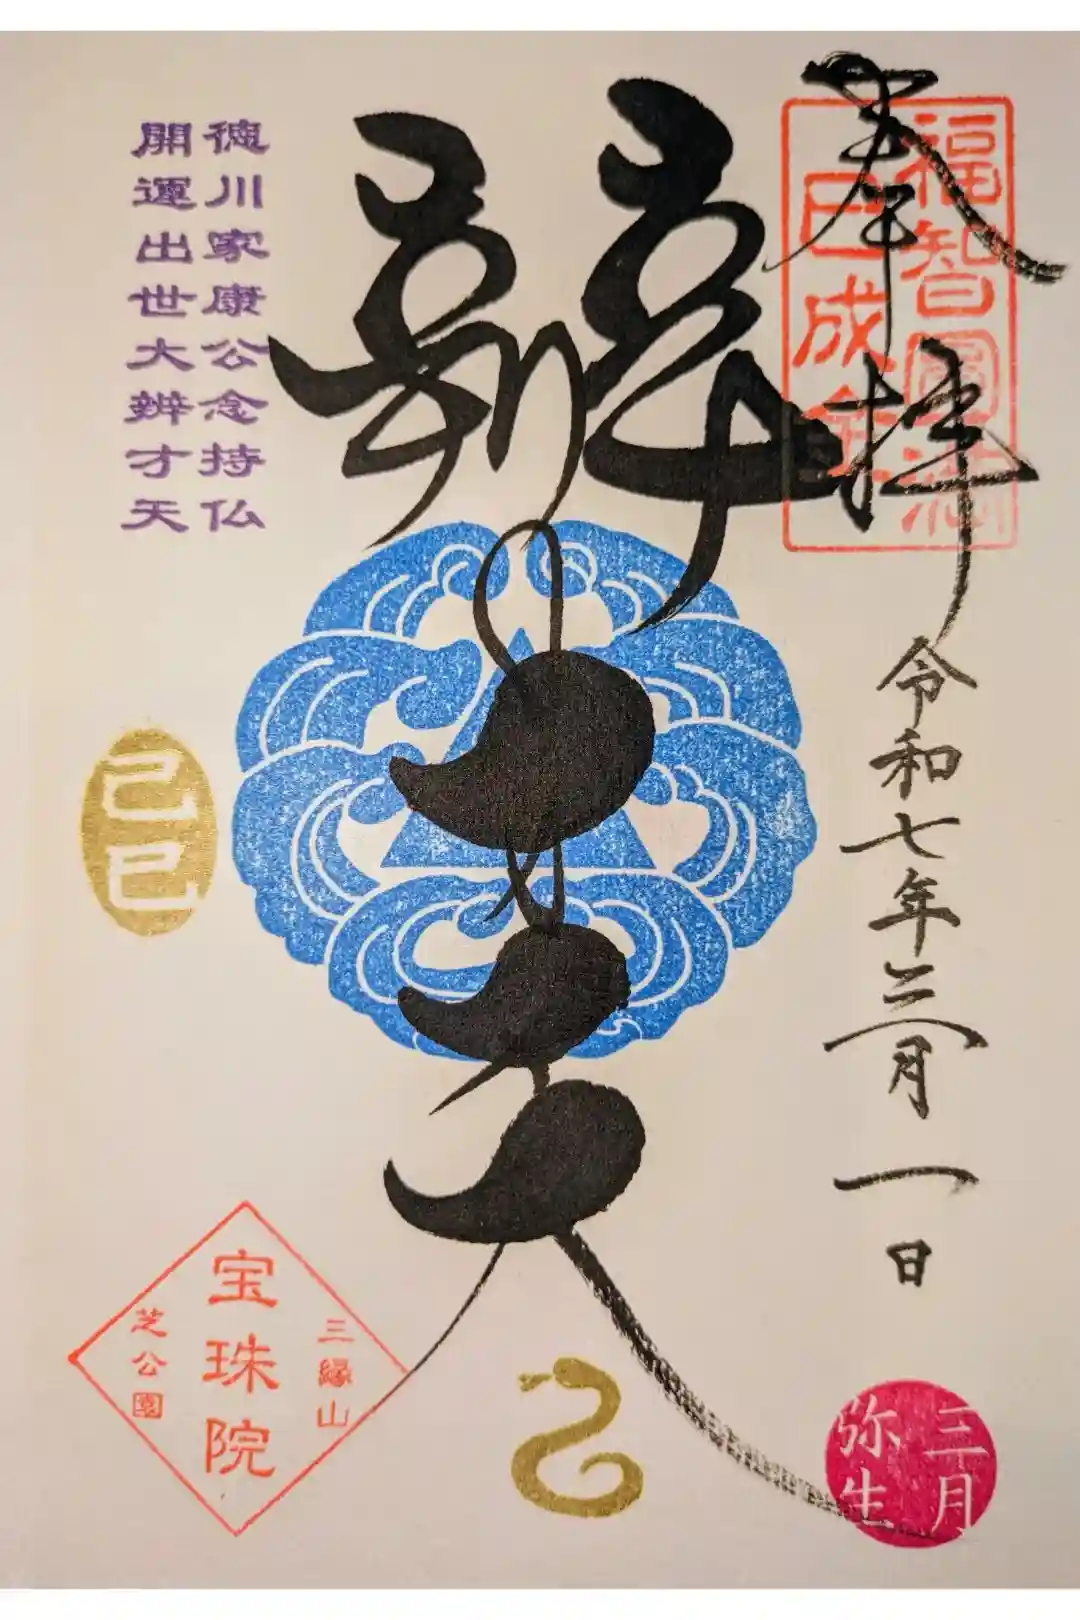 奉拝
福智圓満
巳成金
令和七年三月一日
三月
弥生
辨才天
徳川家康公念持仏
開運出世大辨才天
己巳
三縁山
宝珠院
芝公園